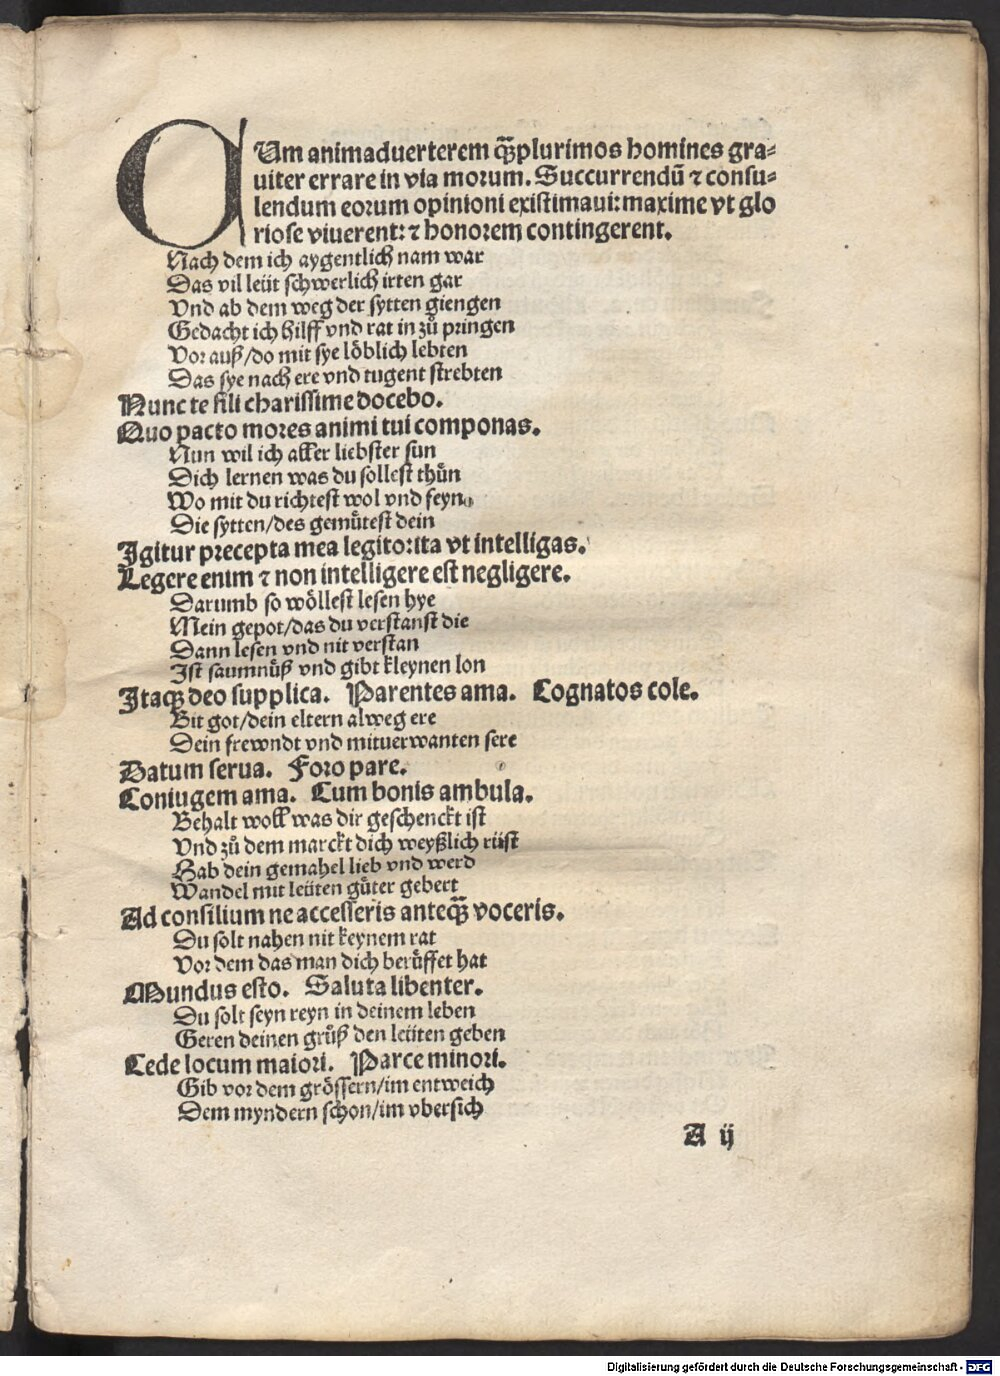 CUm animaduerterem qȝplurimos homines gra⸗
uiter errare in via morum. Succurrendū ⁊ consu⸗
lendum eorum opinioni existimaui: maxime vt glo
riose viuerent: ⁊ honorem contingerent.
Nach dem ich aygentlich nam war
Das vil leüt schwerlich irten gar
Vnd ab dem weg der sytten giengen
Gedacht ich hilff vnd rat in zů pringen
Vor auß/do mit sye löblich lebten
Das sye nach ere vnd tugent strebten
Nunc te fili charissime docebo.
Quo pacto mores animi tui componas.
Nun wil ich aller liebster sun
Dich lernen was du sollest thůn
Wo mit du richtest wol vnd feyn
Die sytten/des gemütest dein
Igitur precepta mea legitorita vt intelligas.
Legere enim ⁊ non intelligere est negligere.
Darumb so wöllest lesen hye
Mein gepot/das du verstanst die
Dann lesen vnd nit verstan
Ist saumnüß vnd gibt kleynen lon
Itaqȝ deo supplica. Parentes ama. Cognatos cole.
Bit got/dein eltern alweg ere
Dein frewndt vnd mituerwanten sere
Datum serua. Foro pare.
Coniugem ama. Cum bonis ambula.
Behalt woll was dir geschenckt ist
Vnd zů dem marckt dich weyßlich rüst
Hab dein gemahel lieb vnd werd
Wandel mit leüten gůter gebert
Ad consilium ne accesseris anteqȝ̃ voceris.
Du solt nahen nit keynem rat
Vor dem das man dich berůffet hat
Mundus esto. Saluta libenter.
Du solt seyn reyn in deinem leben
Geren deinen grůß den leüten geben
Cede locum maiori. Parce minori.
Gib vor dem grössern/im entweich
Dem myndern schon/im vbersich
A ij
Digitalisierung gefördert durch die Deutsche Forschungsgemeinschaft - DFG